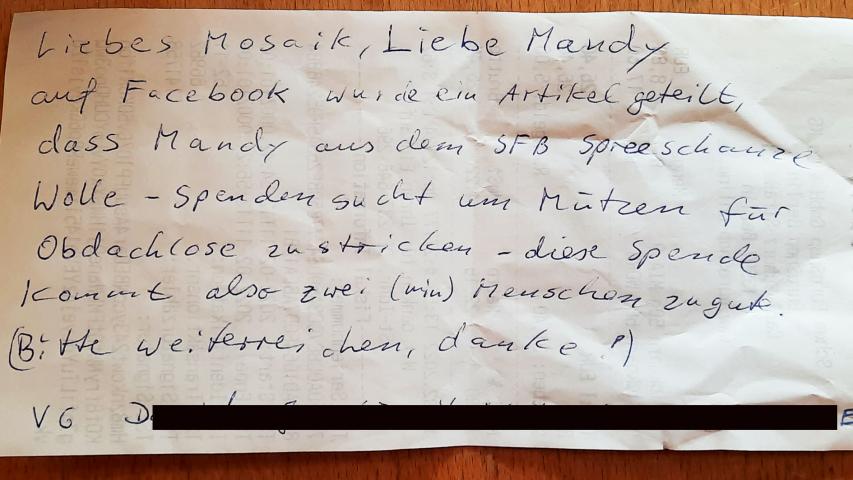 Liebes Mosaik, Liebe Mandy
auf Facebook wurde ein Artikel geteilt,
dass Mandy aus dem SFB Spreeschanze
Wolle - Spenden sucht um Mützen für
Obdachlose zu stricken - diese Spende
kommt also zwei (min) Menschen zugute.
(Bitte weiterreichen, danke!)
VG